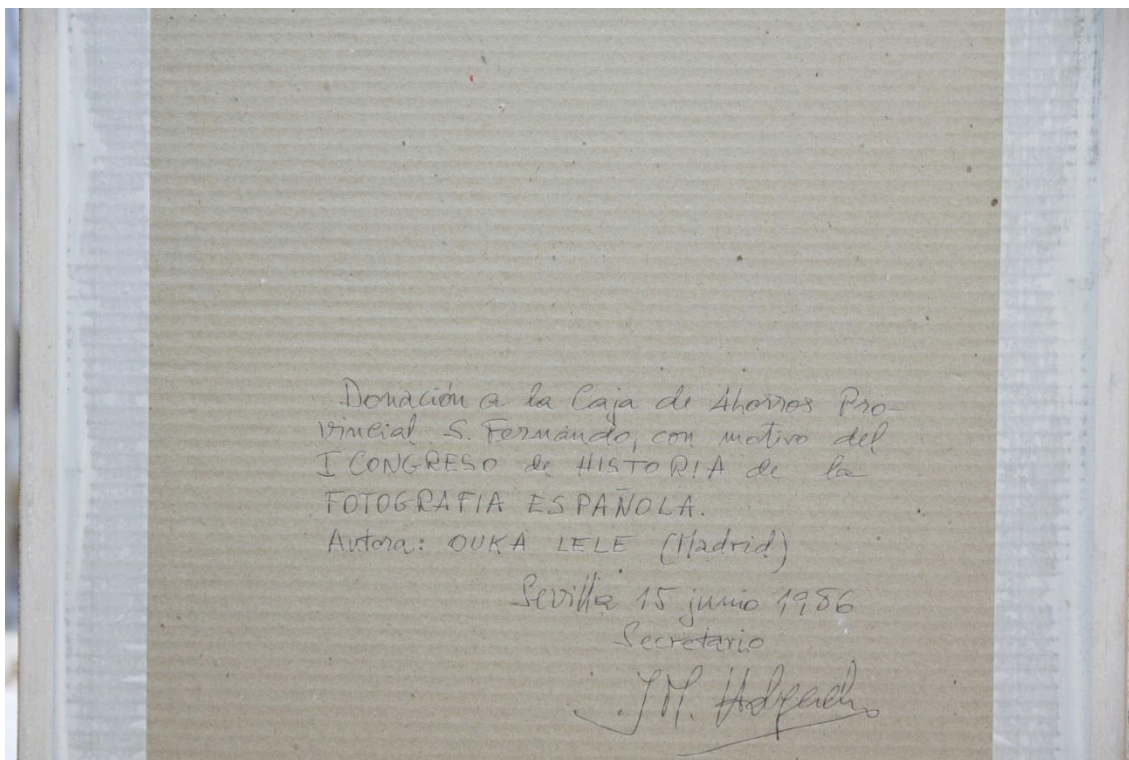 Donación a la Caja de Ahorros Pro-
vincial S. Fernando, con motivo del
I CONGRESO de HISTORIA de la
FOTOGRAFIA ESPAÑOLA.
Autora: OUKA LELE (Madrid)
Sevilla 15 junio 1986
Secretario
J.M. Holgado